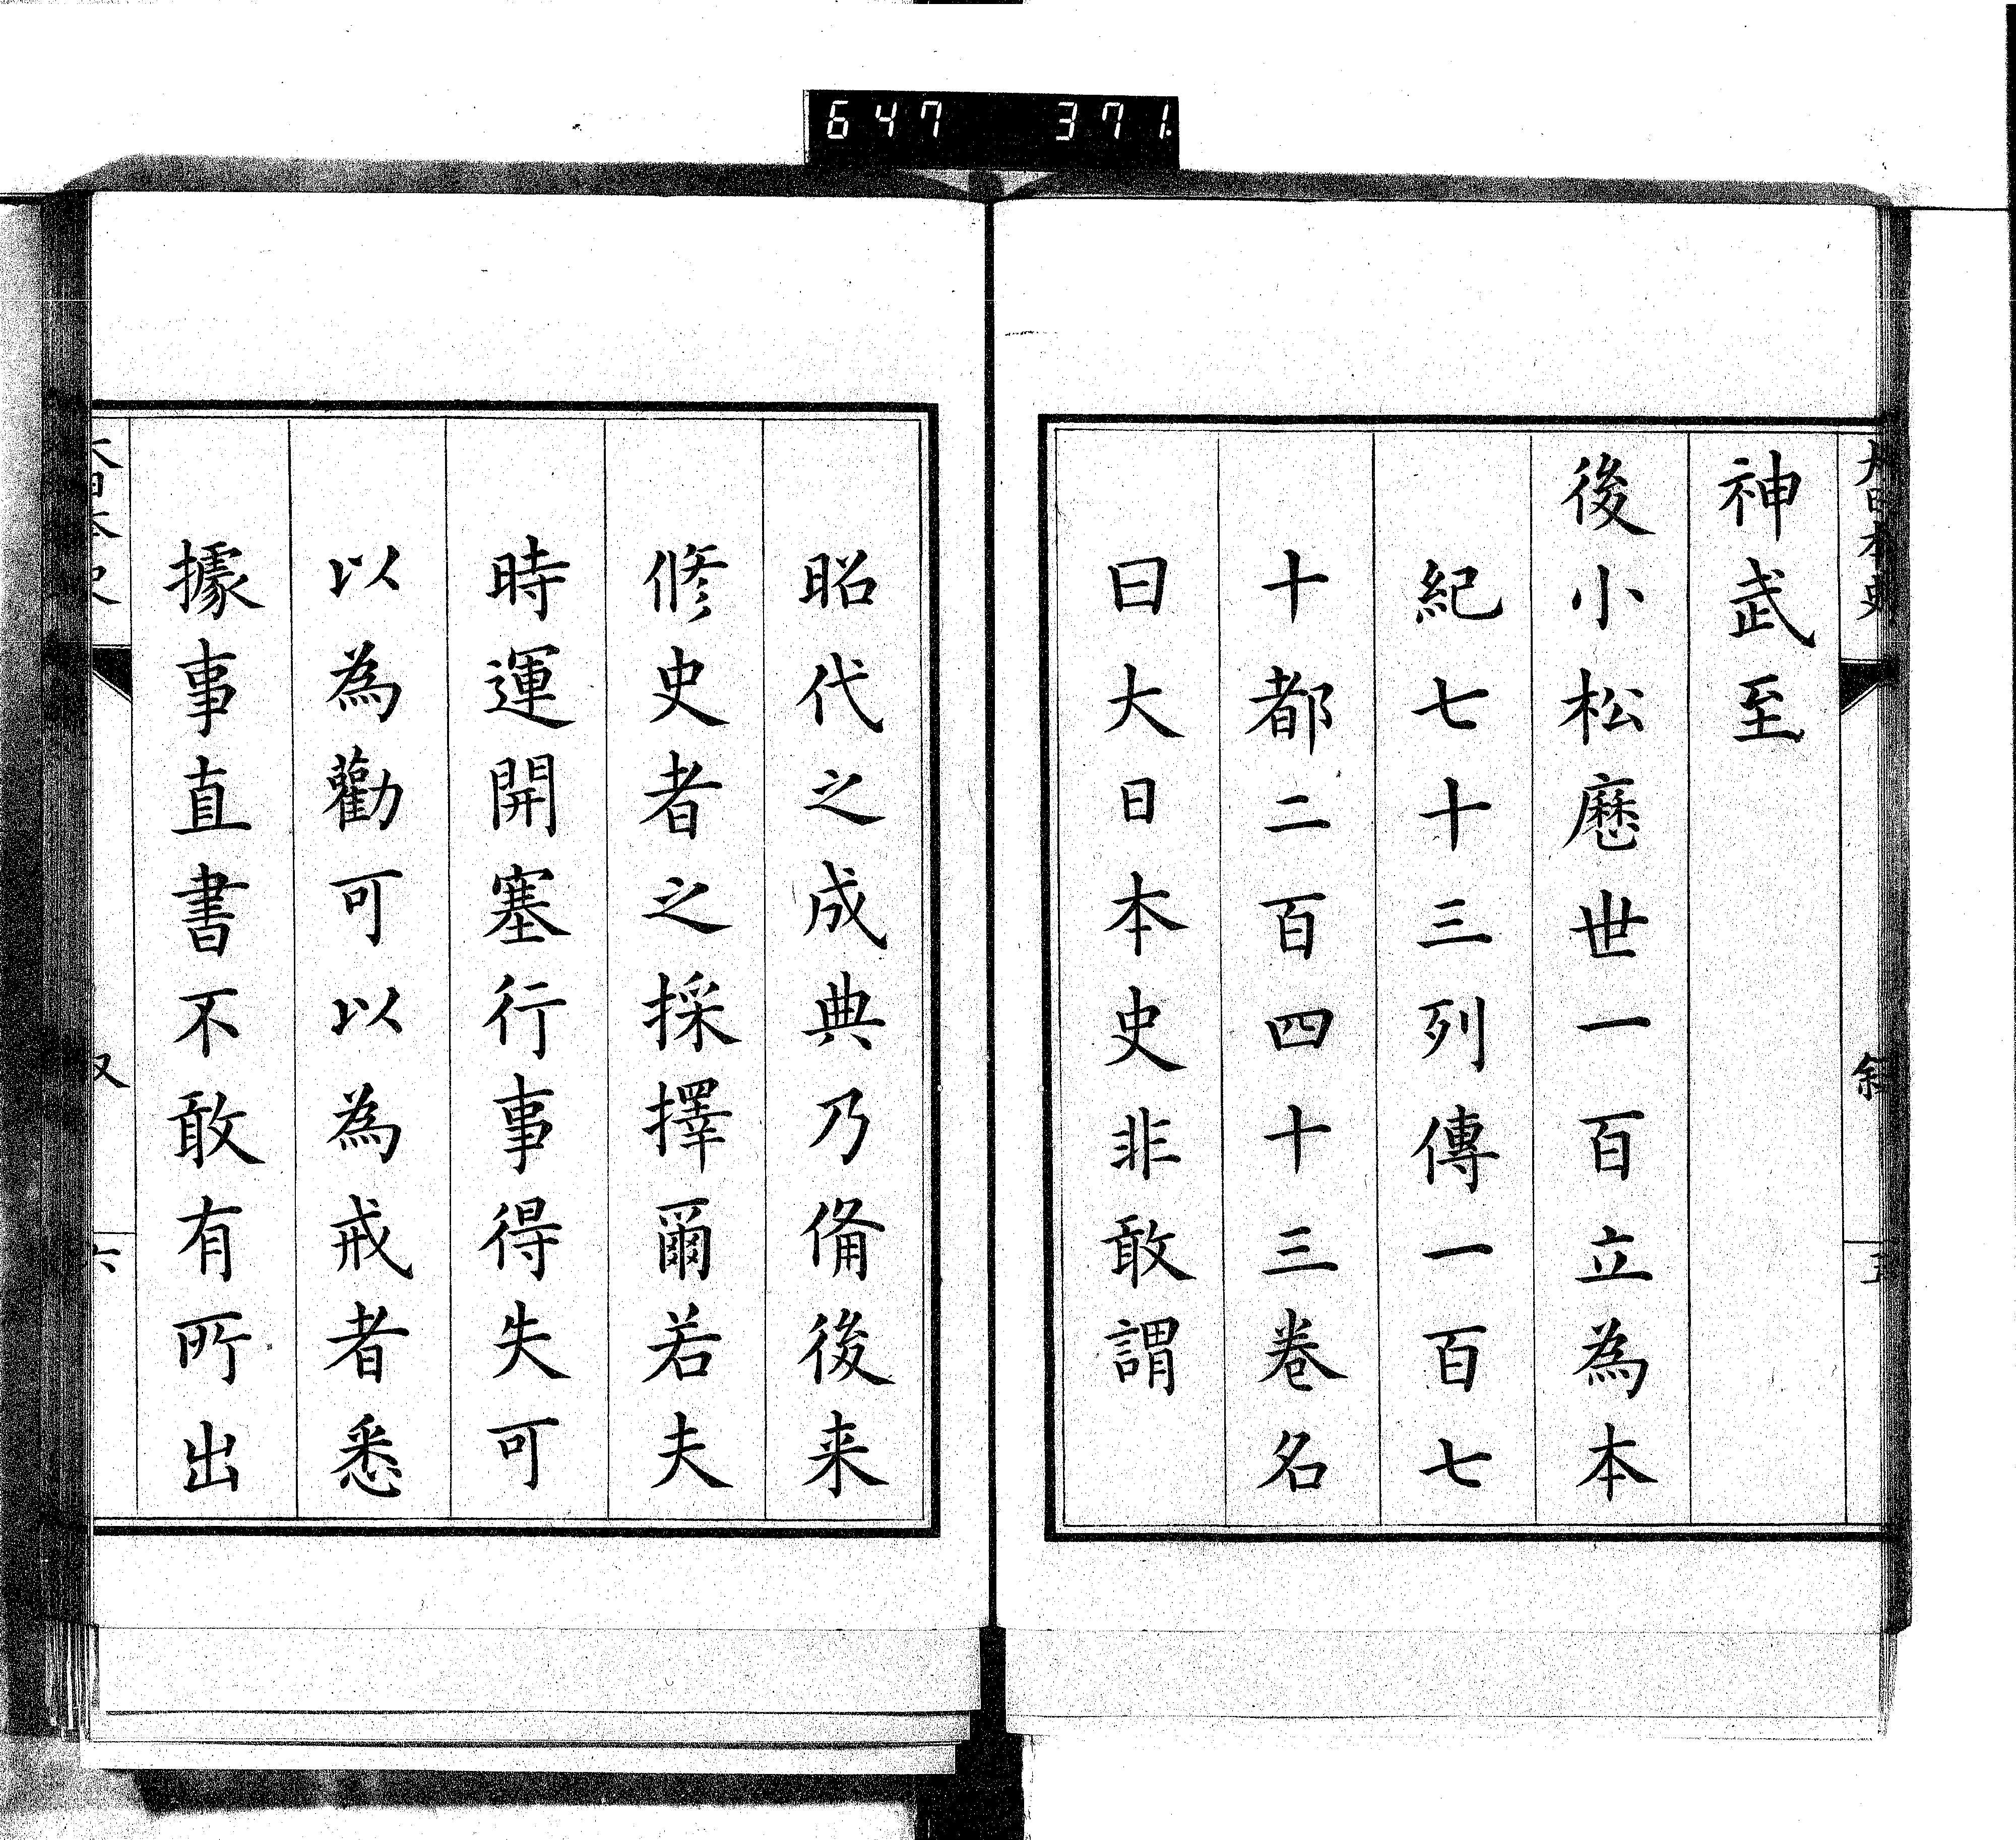 647 371
大日本史 敘 五
神武至
後小松歷世一百立為本
紀七十三列傳一百七
十都二百四十三卷名
曰大日本史非敢謂
昭代之成典乃俻後来
修史者之採擇爾若夫
時運開塞行事得失可
以為勸可以為戒者悉
據事直書不敢有所出
大日本史 六